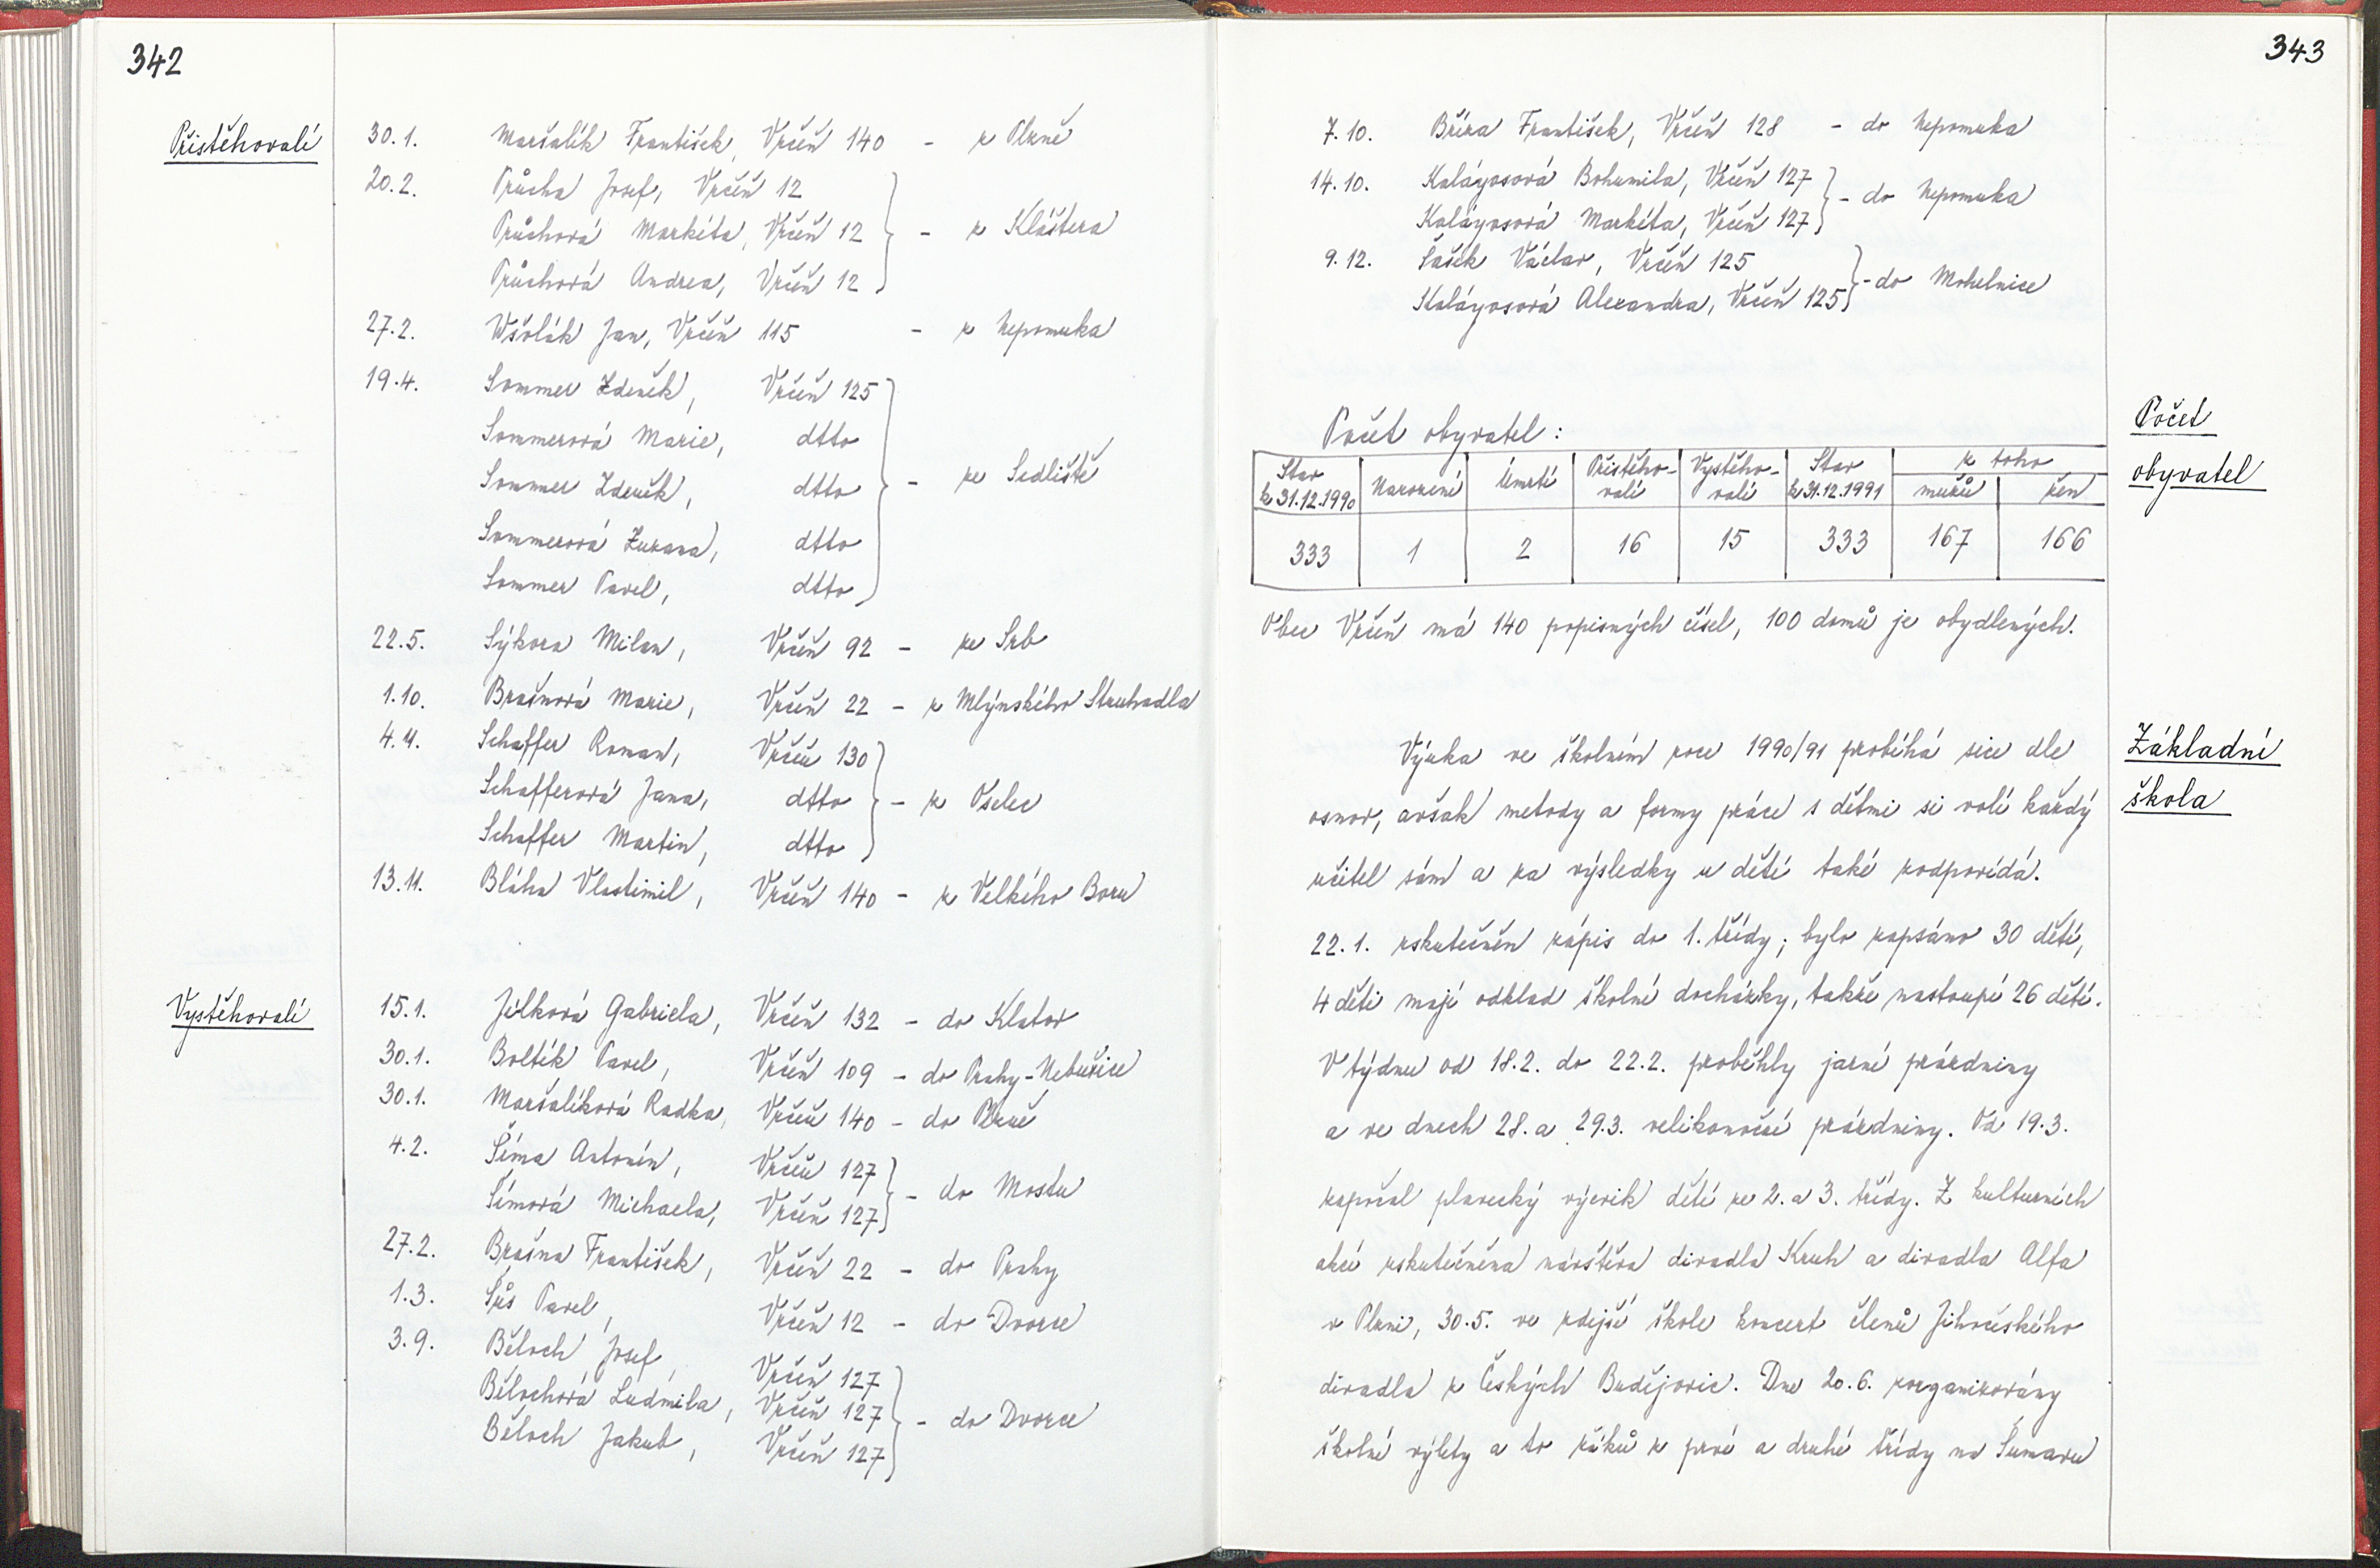 342
Přistěhovalí
30.1. Maršalík František, Vrčeň 140 - z Plzně
20.2. Průcha Josef, Vrčeň 12
Průchová Markéta, Vrčeň 12 - z Kláštera
Průchová Andrea, Vrčeň 12
27.2. Wšolák Jan, Vrčeň 115 - z Nepomuka
19.4. Sommer Zdeněk, Vrčeň 125
Sommerová Marie, dtto
Sommer Zdeněk, dtto - ze Sedliště
Sommerová Zuzana, dtto
Sommer Pavel, dtto
22.5. Sýkora Milan, Vrčeň 92 - ze Srb
1.10. Brašnová Marie, Vrčeň 22 - z Mlýnského Struhadla
4.11. Schaffer Roman, Vrčeň 130
Schafferová Jana, dtto - z Oselec
Schaffer Martin, dtto
13.11. Bláha Vlastimil, Vrčeň 140 - z Velkého Boru
Vystěhovalí
15.1. Jílková Gabriela, Vrčeň 132 - do Klatov
30.1. Boltík Pavel, Vrčeň 109 - do Prahy-Nebušice
30.1. Maršalíková Radka, Vrčeň 140 - do Plzně
4.2. Šíma Antonín, Vrčeň 127
Šímová Michaela, Vrčeň 127 - do Mostu
27.2. Brašna František, Vrčeň 22 - do Prahy
1.3. Sůs Pavel, Vrčeň 12 - do Dvorce
3.9. Běloch Josef, Vrčeň 127
Bělochová Ludmila, Vrčeň 127 - do Dvorce
Běloch Jakub, Vrčeň 127
343
7.10. Bříza František, Vrčeň 128 - do Nepomuka
14.10. Kalágosová Bohumila, Vrčeň 127
Kalágosová Markéta, Vrčeň 127 - do Nepomuka
9.12. Šašek Václav, Vrčeň 125
Kalágosová Alexandra, Vrčeň 125 - do Mohelnice
Počet
obyvatel
Počet obyvatel:
Stav k 31.12.1990 Narození Úmrtí Přistěho-valí Vystěho-valí Stav k 31.12.1991 z toho mužů žen
333 1 2 16 15 333 167 166
Obec Vrčeň má 140 popisných čísel, 100 domů je obydlených.
Základní
škola
Výuka ve školním roce 1990/91 probíhá sice dle
osnov, avšak metody a formy práce s dětmi si volí každý
učitel sám a za výsledky u dětí také zodpovídá.
22.1. uskutečněn zápis do 1. třídy; bylo zapsáno 30 dětí,
4 děti mají odklad školní docházky, takže nastoupí 26 dětí.
V týdnu od 18.2. do 22.2. proběhly jarní prázdniny
a ve dnech 28. a 29.3. velikonoční prázdniny. Od 19.3.
započal plavecký výcvik dětí ze 2. a 3. třídy. Z kulturních
akcí uskutečněna návštěva divadla Kruh a divadla Alfa
v Plzni, 30.5. ve zdejší škole koncert členů Jihočeského
divadla z Českých Budějovic. Dne 20.6. zorganizovány
školní výlety a to žáků z prvé a druhé třídy na Šumavu